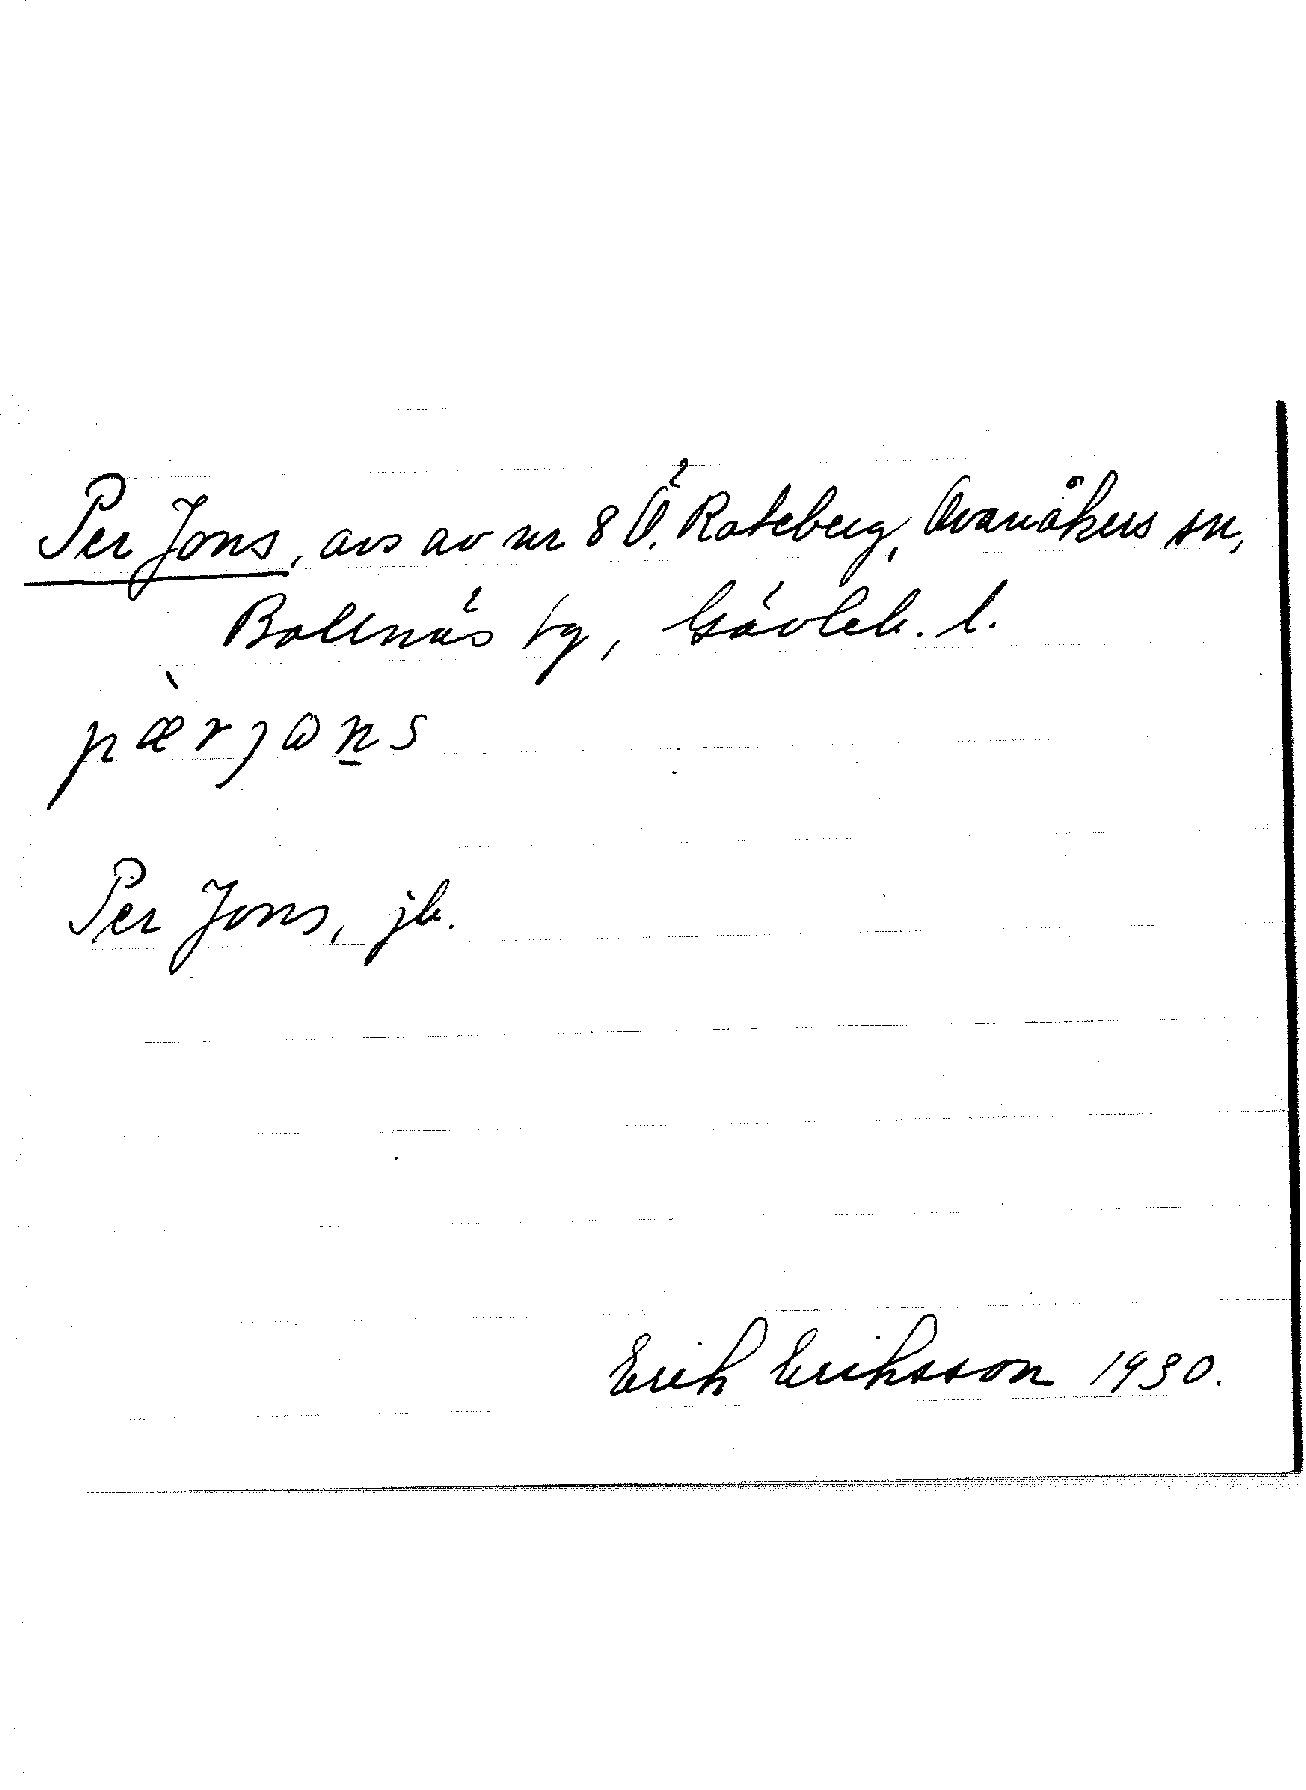 Per Jons, avs av nr 8 Ö. Roteberg, Ovanåkers sn,
Bollnäs tg, Gävleb. l.
pæ̀rjɷn̲s
Per Jons, jb.
Erik Eriksson 1930.